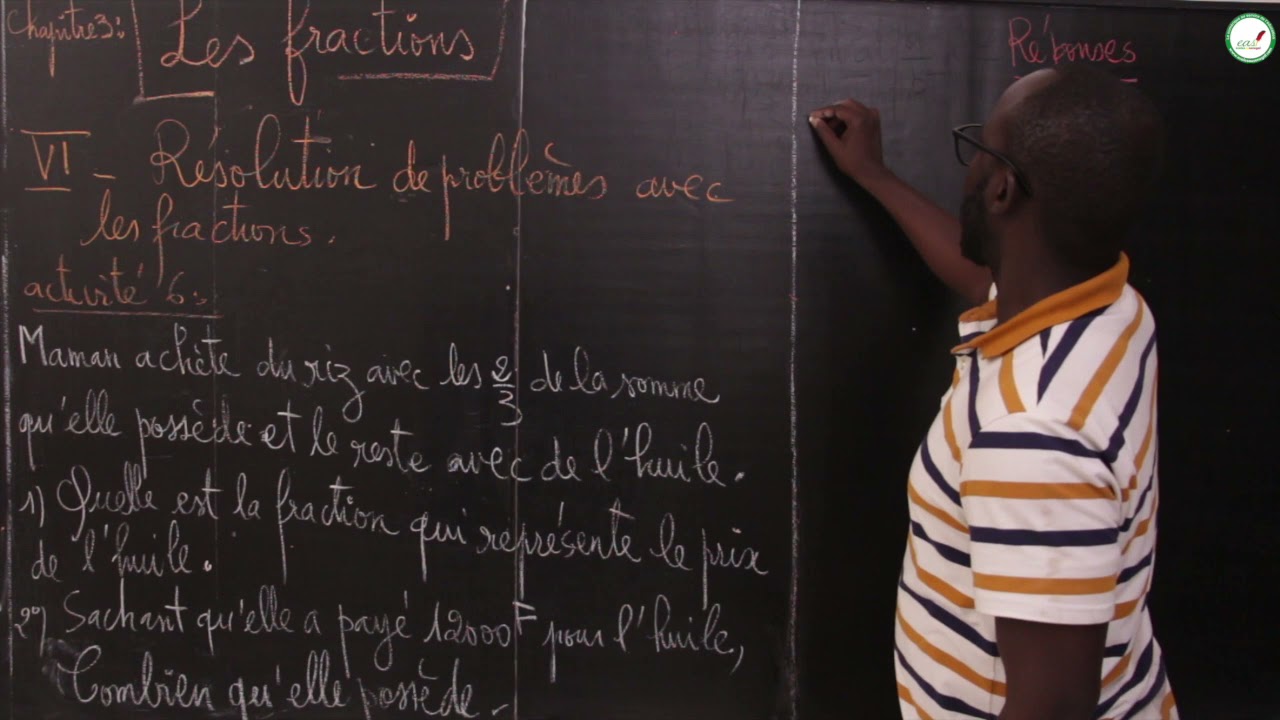 Chapitre3:
Les fractions
VI - Résolution de problèmes avec
les fractions.
activité 6:
Maman achète du riz avec les 2/3 de la somme
qu'elle possède et le reste avec de l'huile.
1) Quelle est la fraction qui représente le prix
de l'huile.
2°) Sachant qu'elle a payé 12000F pour l'huile,
Combien qu'elle possède.
Réponses
eas!